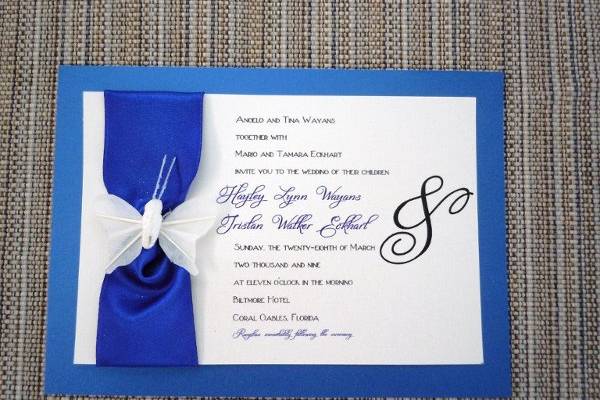 Angelo and Tina Wayans
together with
Mario and Tamara Eckhart
invite you to the wedding of their children
Hayley Lynn Wayans
&
Tristan Walker Eckhart
Sunday, the twenty-eighth of March
two thousand and nine
at eleven o'clock in the morning
Biltmore Hotel
Coral Gables, Florida
Reception immediately following the ceremony